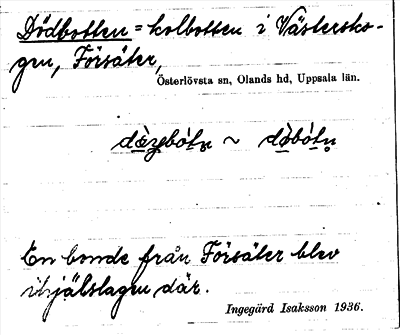 Dödbotten = kolbotten i Västersko-
gen, Försäter,
Österlövsta sn, Olands hd, Uppsala län.
En bonde från Försäter blev
ihjälslagen där.
Ingegärd Isaksson 1936.